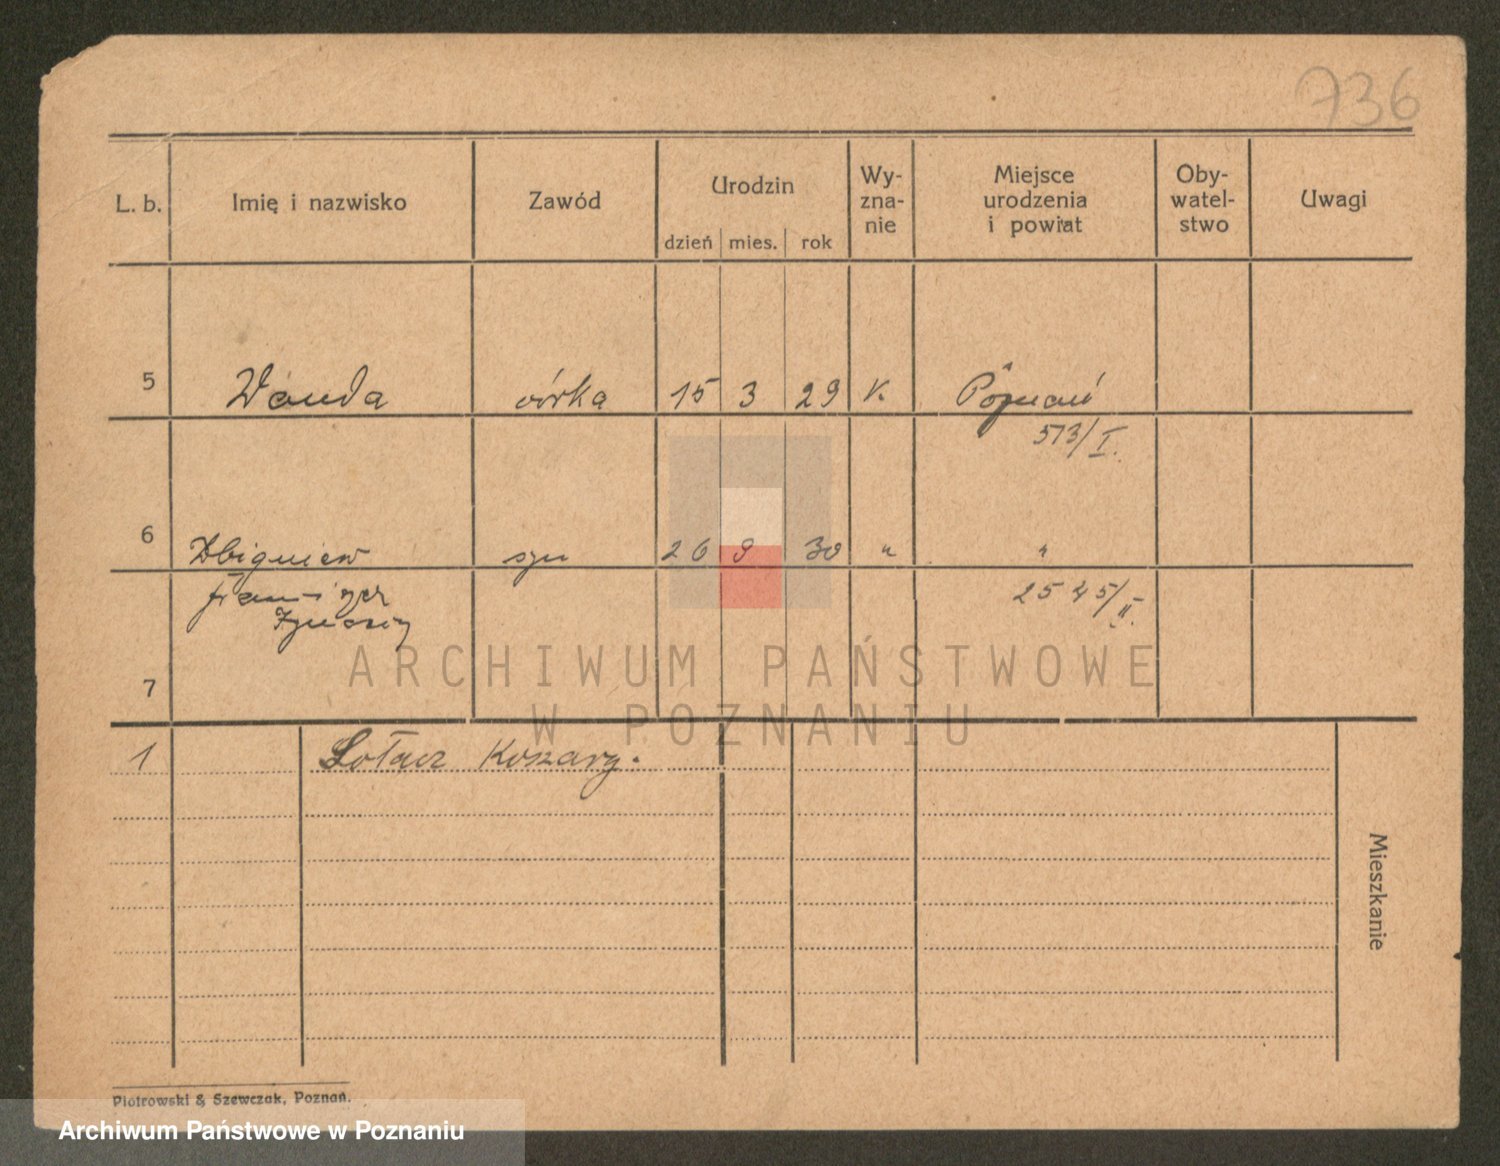 736
L. b. Imię i nazwisko Zawód Urodzin Wy- Miejsce Oby- Uwagi
zna- urodzenia watel-
dzień mies. rok nie i powiat stwo
5 Wanda córka 15 3 29 k. Poznań
573/I.
6 Zbigniew syn 26 9 30 " "
Franciszek 2545/II.
7
ARCHIWUM PAŃSTWOWE
W POZNANIU
1 Sołacz Koszary.
Mieszkanie
Piotrowski & Szewczak, Poznań.
Archiwum Państwowe w Poznaniu